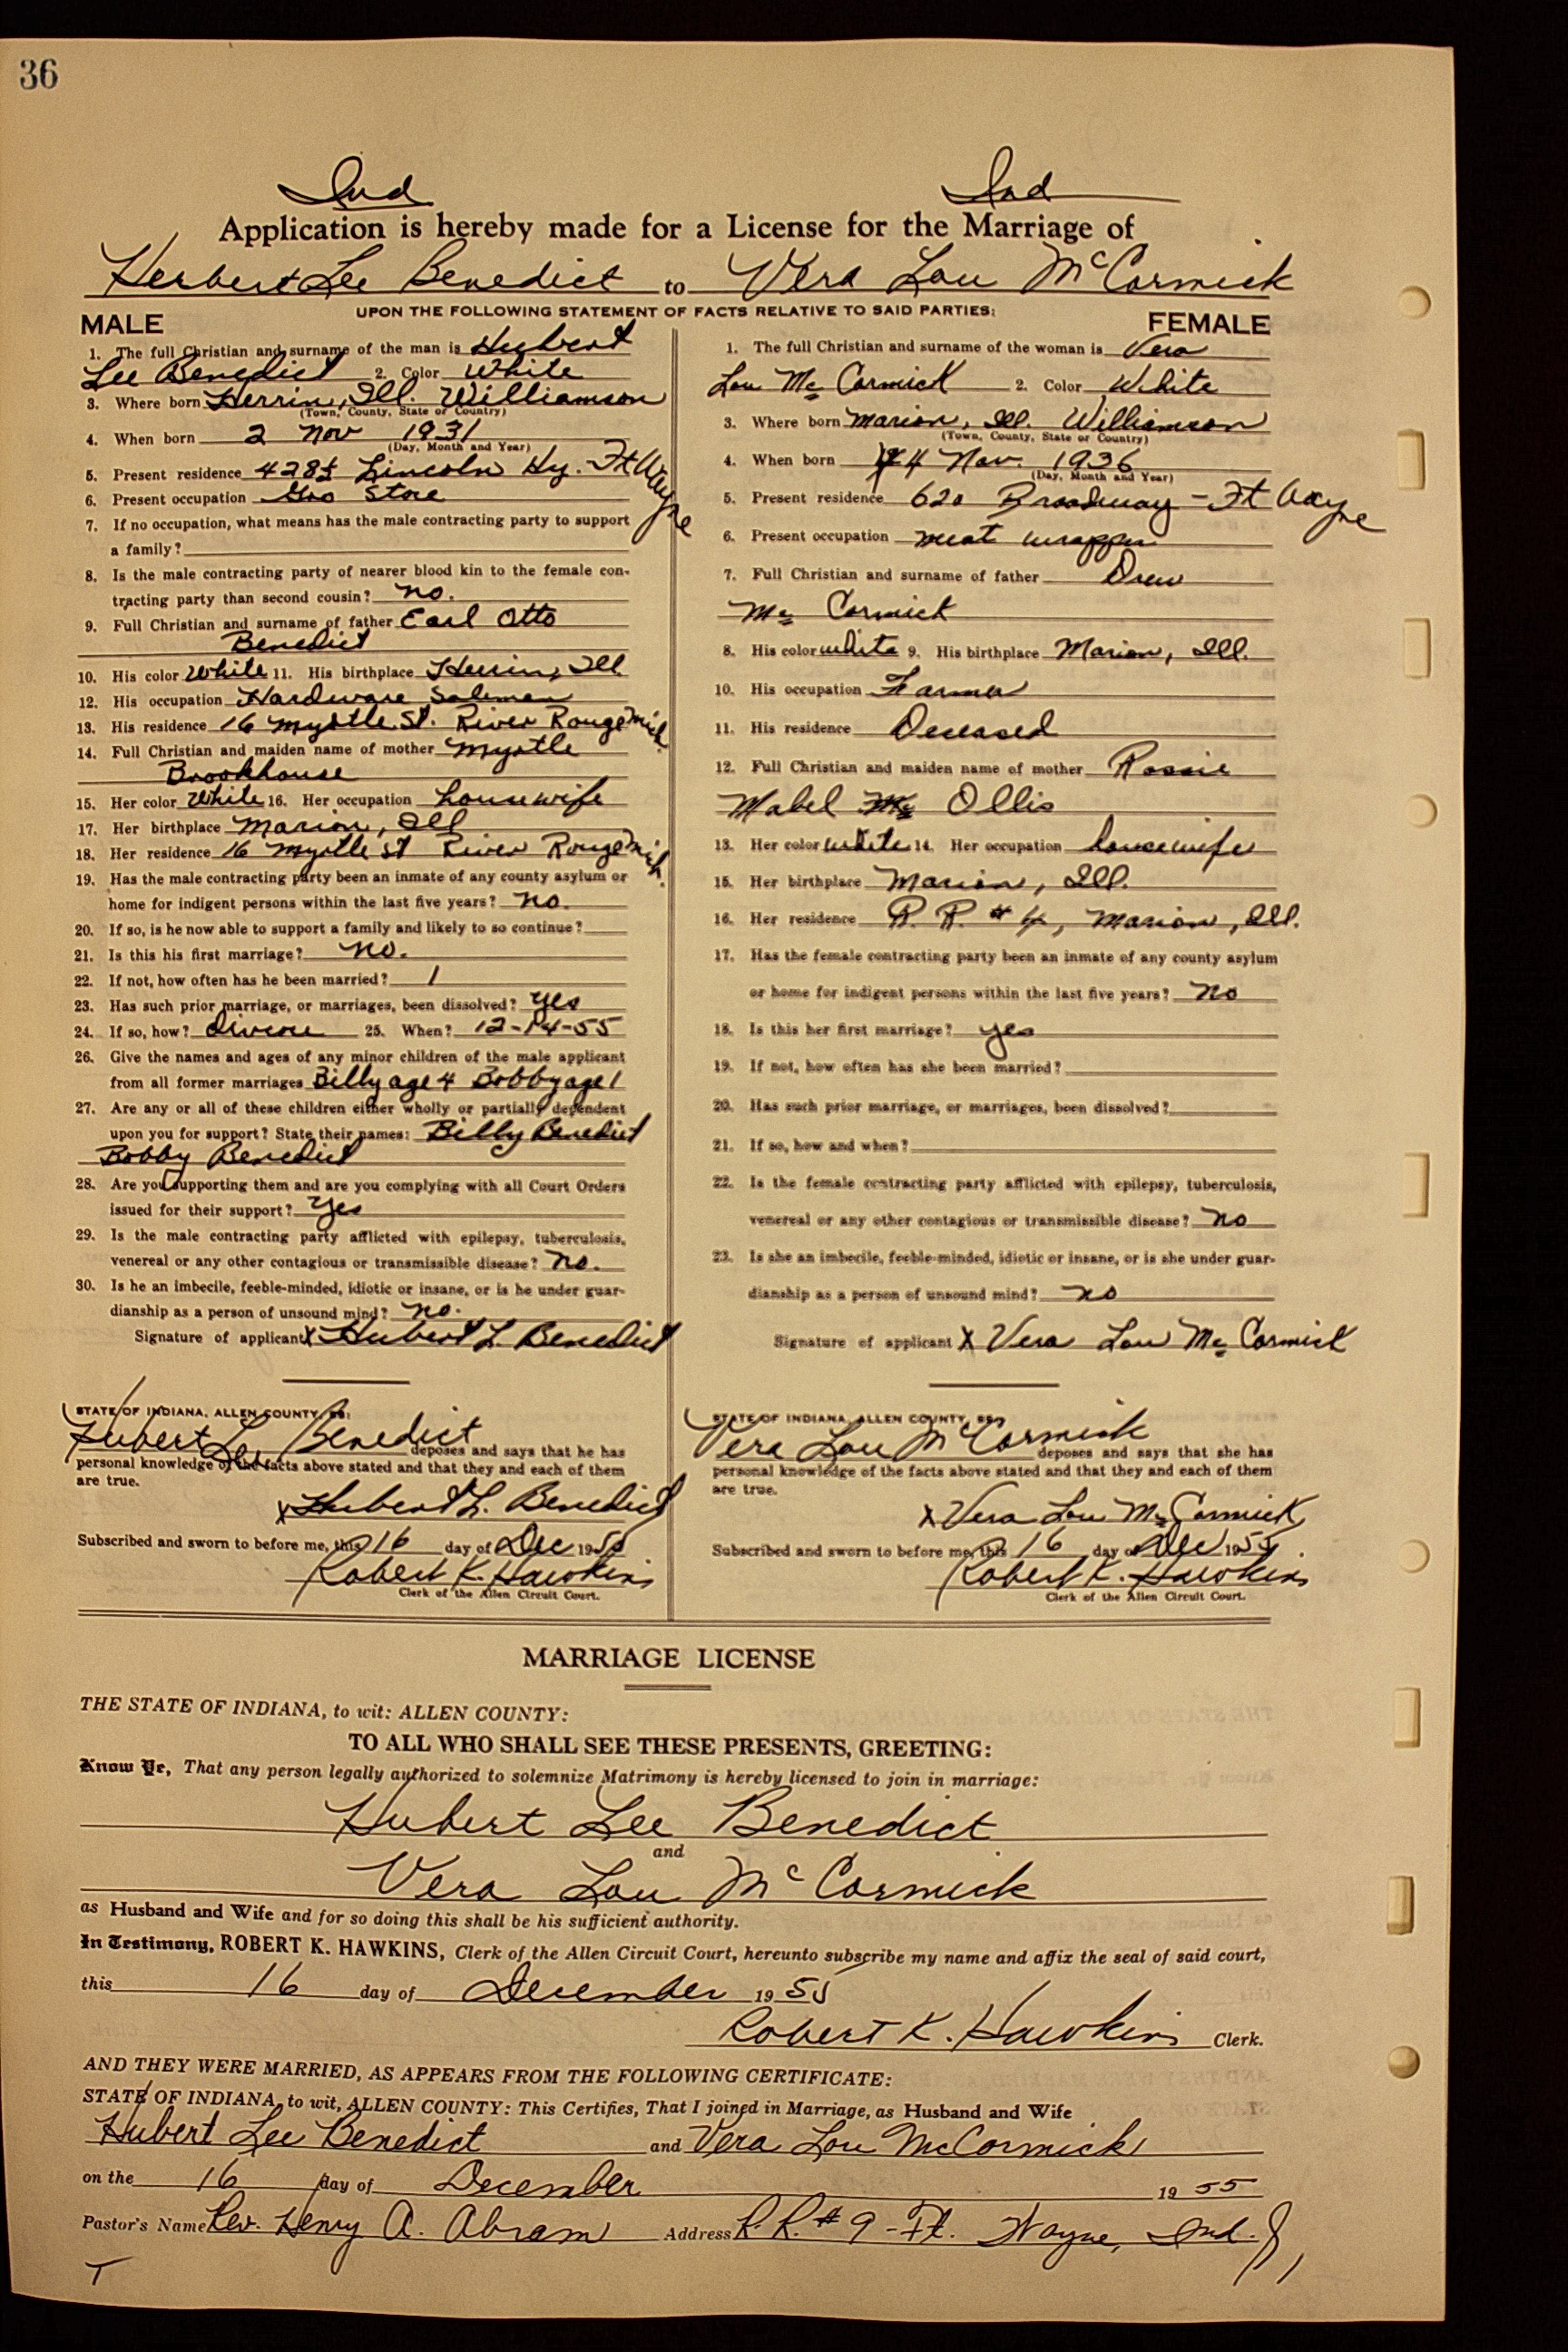 36
Ind Ind
Application is hereby made for a License for the Marriage of
Herbert Lee Benedict to Vera Lou McCormick
UPON THE FOLLOWING STATEMENT OF FACTS RELATIVE TO SAID PARTIES:
MALE
1. The full Christian and surname of the man is Hubert
Lee Benedict 2. Color White
3. Where born Herrin, Ill. Williamson
(Town, County, State or Country)
4. When born 2 Nov 1931
(Day, Month and Year)
5. Present residence Lincoln Hy. - Ft Wayne
6. Present occupation Gro Store
7. If no occupation, what means has the male contracting party to support
a family?
8. Is the male contracting party of nearer blood kin to the female con-
tracting party than second cousin? no.
9. Full Christian and surname of father Earl Otto
Benedict
10. His color White 11. His birthplace Herrin, Ill
12. His occupation Hardware Salesman
13. His residence 16 Myrtle St. River Rouge Mich.
14. Full Christian and maiden name of mother Myrtle
Brookhouse
15. Her color White 16. Her occupation housewife
17. Her birthplace Marion, Ill
18. Her residence 16 Myrtle St River Rouge Mich.
19. Has the male contracting party been an inmate of any county asylum or
home for indigent persons within the last five years? no.
20. If so, is he now able to support a family and likely to so continue?
21. Is this his first marriage? no.
22. If not, how often has he been married? 1
23. Has such prior marriage, or marriages, been dissolved? yes
24. If so, how? divorce 25. When? 12-14-55
26. Give the names and ages of any minor children of the male applicant
from all former marriages Billy age 4 Bobby age 1
27. Are any or all of these children either wholly or partially dependent
upon you for support? State their names: Billy Benedict
Bobby Benedict
28. Are you supporting them and are you complying with all Court Orders
issued for their support? Yes
29. Is the male contracting party afflicted with epilepsy, tuberculosis,
venereal or any other contagious or transmissible disease? no.
30. Is he an imbecile, feeble-minded, idiotic or insane, or is he under guar-
dianship as a person of unsound mind? no.
Signature of applicant X Hubert L. Benedict
STATE OF INDIANA, ALLEN COUNTY, SS:
Hubert Lee Benedict deposes and says that he has
personal knowledge of the facts above stated and that they and each of them
are true.
X Hubert L. Benedict
Subscribed and sworn to before me, this 16 day of Dec 1955
Robert K. Hawkins
Clerk of the Allen Circuit Court.
FEMALE
1. The full Christian and surname of the woman is Vera
Lou McCormick 2. Color White
3. Where born Marion, Ill. Williamson
(Town, County, State or Country)
4. When born 4 Nov. 1936
(Day, Month and Year)
5. Present residence 620 Broadway - Ft Wayne
6. Present occupation meat wrapper
7. Full Christian and surname of father Drew
McCormick
8. His color white 9. His birthplace Marion, Ill.
10. His occupation Farmer
11. His residence Deceased
12. Full Christian and maiden name of mother Rossie
Mabel Ollis
13. Her color white 14. Her occupation housewife
15. Her birthplace Marion, Ill.
16. Her residence R. R. # 4, Marion, Ill.
17. Has the female contracting party been an inmate of any county asylum
or home for indigent persons within the last five years? no
18. Is this her first marriage? yes
19. If not, how often has she been married?
20. Has such prior marriage, or marriages, been dissolved?
21. If so, how and when?
22. Is the female contracting party afflicted with epilepsy, tuberculosis,
venereal or any other contagious or transmissible disease? no
23. Is she an imbecile, feeble-minded, idiotic or insane, or is she under guar-
dianship as a person of unsound mind? no
Signature of applicant X Vera Lou McCormick
STATE OF INDIANA, ALLEN COUNTY, SS:
Vera Lou McCormick deposes and says that she has
personal knowledge of the facts above stated and that they and each of them
are true.
X Vera Lou McCormick
Subscribed and sworn to before me, this 16 day of Dec 1955.
Robert K. Hawkins
Clerk of the Allen Circuit Court.
MARRIAGE LICENSE
THE STATE OF INDIANA, to wit: ALLEN COUNTY:
TO ALL WHO SHALL SEE THESE PRESENTS, GREETING:
Know Ye, That any person legally authorized to solemnize Matrimony is hereby licensed to join in marriage:
Hubert Lee Benedict
and
Vera Lou McCormick
as Husband and Wife and for so doing this shall be his sufficient authority.
In Testimony, ROBERT K. HAWKINS, Clerk of the Allen Circuit Court, hereunto subscribe my name and affix the seal of said court,
this 16 day of December 1955
Robert K. Hawkins Clerk.
AND THEY WERE MARRIED, AS APPEARS FROM THE FOLLOWING CERTIFICATE:
STATE OF INDIANA, to wit, ALLEN COUNTY: This Certifies, That I joined in Marriage, as Husband and Wife
Hubert Lee Benedict and Vera Lou McCormick
on the 16 day of December 1955
Pastor's Name Rev. Henry A. Abram Address R.R. # 9 - Ft. Wayne, Ind.
T